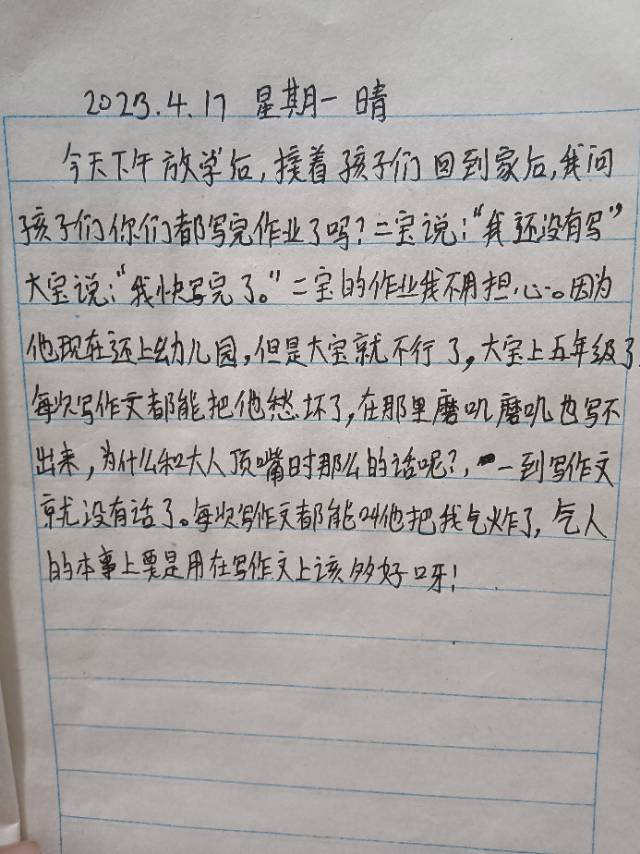 2023.4.17 星期一 晴
今天下午放学后,接着孩子们回到家后,我问
孩子们你们都写完作业了吗?二宝说:“我还没有写”
大宝说:“我快写完了。”二宝的作业我不用担心。因为
他现在还上幼儿园,但是大宝就不行了,大宝上五年级了
每次写作文都能把他愁坏了,在那里磨叽磨叽也写不
出来,为什么和大人顶嘴时那么的话呢?,一到写作文
就没有话了。每次写作文都能叫他把我气炸了,气人
的本事上要是用在写作文上该多好呀!